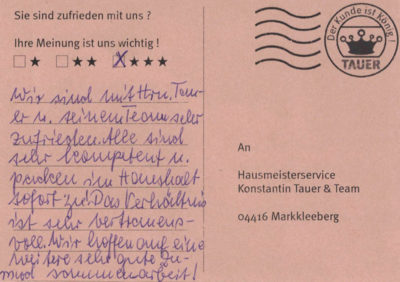 Sie sind zufrieden mit uns ?
Ihre Meinung ist uns wichtig !
Wir sind mit Hrn. Tau-
er u. seinem Team sehr
zufrieden. Alle sind
sehr kompetent u.
packen im Haushalt
sofort zu. Das Verhältnis
ist sehr vertrauens-
voll. Wir hoffen auf eine
weitere sehr gute Zu-
sammenarbeit!
Der Kunde ist König !
TAUER
An
Hausmeisterservice
Konstantin Tauer & Team
04416 Markkleeberg